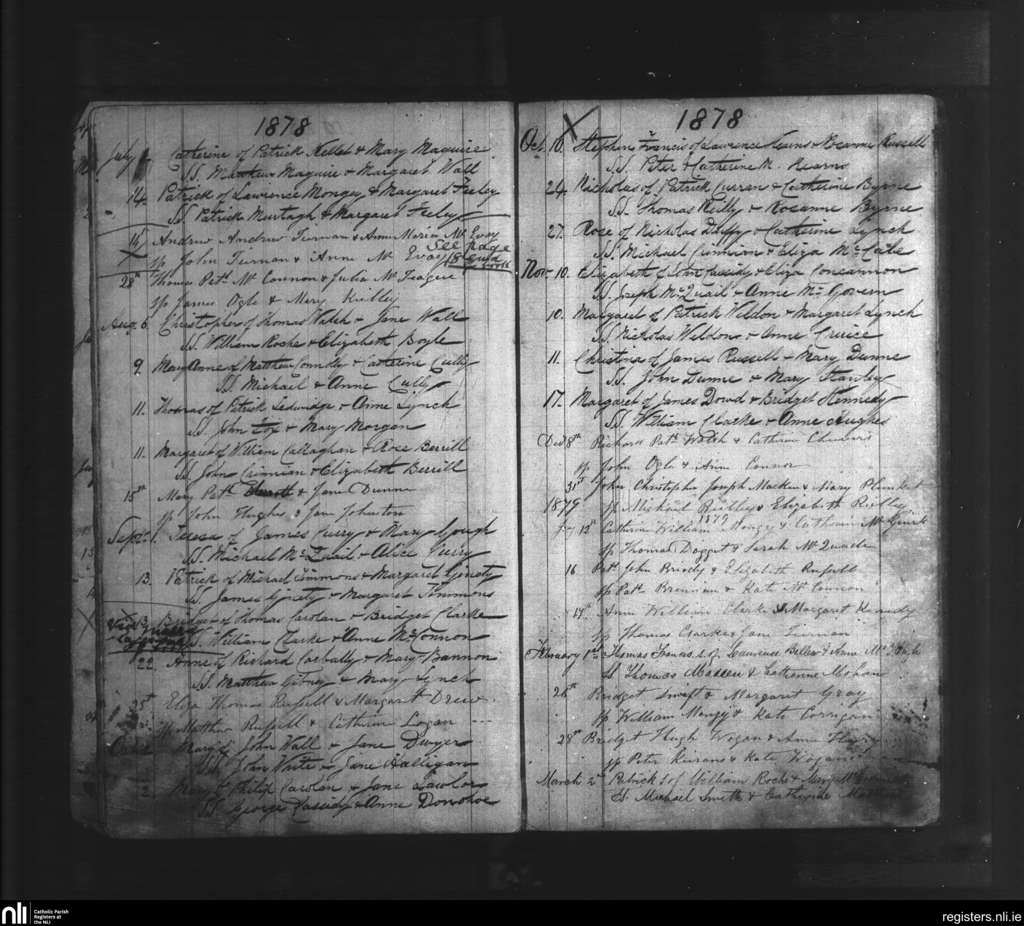 1878
July Catherine of Patrick Kellet & Mary Maguire
SS. Matthew Maguire & Margaret Wall
14. Patrick of Lawrence Mongey & Margaret Feeley
SS Patrick Murtagh & Margaret Feeley
14 Andrew Andrew Tiernan & Anne Maria Mc Evoy
Sp John Tiernan & Anne Mc Evoy See page 18
28th Thomas Patk Mc Connon & Julia Mc
Sp James Ogle & Mary
Aug. 6. Christopher of Thomas Walsh & Jane Wall
SS. William Roche & Elizabeth Boyle
9. Mary Anne of Matthew Connolly & Catherine Cully
SS. Michael & Anne Cully
11. Thomas of Patrick Ledwidge & Anne Lynch
SS. John Fox & Mary Morgan
11. Margaret of William Callaghan & Rose Berrill
SS. John Crinnion & Elizabeth Berrill
15th Mary Patk & Jane Dunne
Sp John Hughes & Jane Johnston
Sept. 1. Teresa of James Curry & Mary Gough
SS. Michael Mc Quail & Alice Curry
13. Patrick of Michael Timmons & Margaret Ginety
SS. James Ginety & Margaret Timmons
Bridget of Thomas Carolan & Bridget Clarke
William Clarke & Anne McConnon
22. Anne of Richard Carbally & Mary Bannon
SS. Matthew Gibney & Mary Lynch
25th Eliza Thomas Russell & Margaret Drew
Sp Mathew Russell & Catherine Logan
Oct. Mary of John Wall & Jane Dwyer
SS. John White & Jane Halligan
2. Mary of Philip Carolan & Jane Lawlor
SS. George Cassidy & Anne Donohoe
1878
Oct. 10. Stephen Francis of Lawrence Kearns & Roseanne Russell
SS. Peter & Catherine M. Kearns
24. Nicholas of Patrick Curran & Catherine Byrne
SS. Thomas Reilly & Rosanne Byrne
27. Rose of Nicholas Duffy & Catherine Lynch
SS. Michael Crinnion & Eliza McCabe
Nov. 10. Elizabeth of John Cassidy & Eliza Concannon
SS. Joseph McQuail & Anne McGovern
10. Margaret of Patrick Weldon & Margaret Lynch
SS. Nicholas Weldon & Anne Cruise
11. Christina of James Russell & Mary Dunne
SS. John Dunne & Mary Stanley
17. Margaret of James Dowd & Bridget Kennedy
SS. William Clarke & Anne Hughes
Decr 8th Richard Patk Walsh & Catherine
Sp John Ogle & Anne Connor
31st John Christopher Joseph Macken & Mary Plunket
1879 Sp Michael Reilly & Elizabeth Reilly
1879
13th Catherine William Mongey & Catherine Mc Guirk
Sp Thomas Dogget & Sarah Mc Quade
16 Patk John Briody & Elizabeth Russell
Sp Patk Brennan & Kate Mc Connon
19th Anne William Clarke & Margaret Kennedy
Sp Thomas Clarke & Jane Tiernan
February 1st Thomas Francis s. of Laurence Bellew & Anne Mc Cabe
SS. Thomas Madden & Catherine Meghan
26th Bridget Swift & Margaret Gray
Sp William Mongy & Kate Corrigan
28th Bridget Hugh Wogan & Anne
Sp Peter Kieran & Kate Wogan
March 2nd Patrick s. of William Roche & Mary
SS. Michael Smith & Catherine
nli
Catholic Parish
Registers at
the NLI
registers.nli.ie